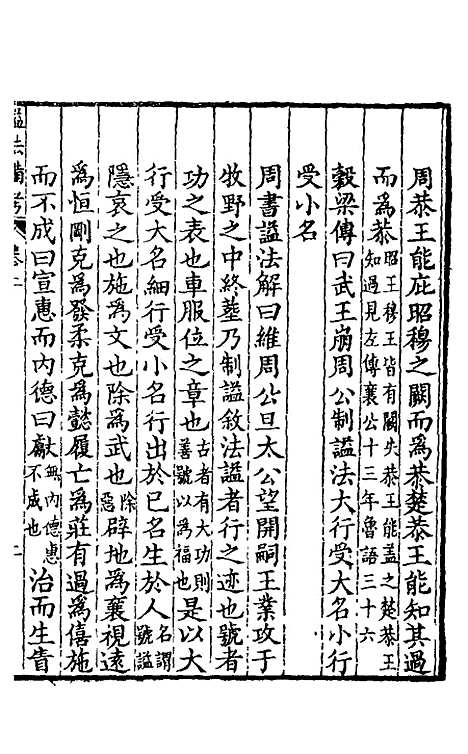 周恭王能庇昭穆之闕而爲恭楚恭王能知其過
而爲恭昭王穆王皆有闕失恭王能蓋之楚恭王知過見左傳襄公十三年魯語三十六
穀梁傳曰武王崩周公制謚法大行受大名小行
受小名
周書謚法解曰維周公旦太公望開嗣王業攻于
牧野之中終葬乃制謚敘法謚者行之迹也號者
功之表也車服位之章也古者有大功則善號以爲福也是以大
行受大名細行受小名行出於已名生於人名謂號謚
隱哀之也施爲文也除爲武也除惡辟地爲襄視遠
爲恒剛克爲發柔克爲懿履亡爲莊有過爲僖施
而不成曰宣惠而内德曰獻無内德惠不成也治而生眚
謚法備考
卷二
二